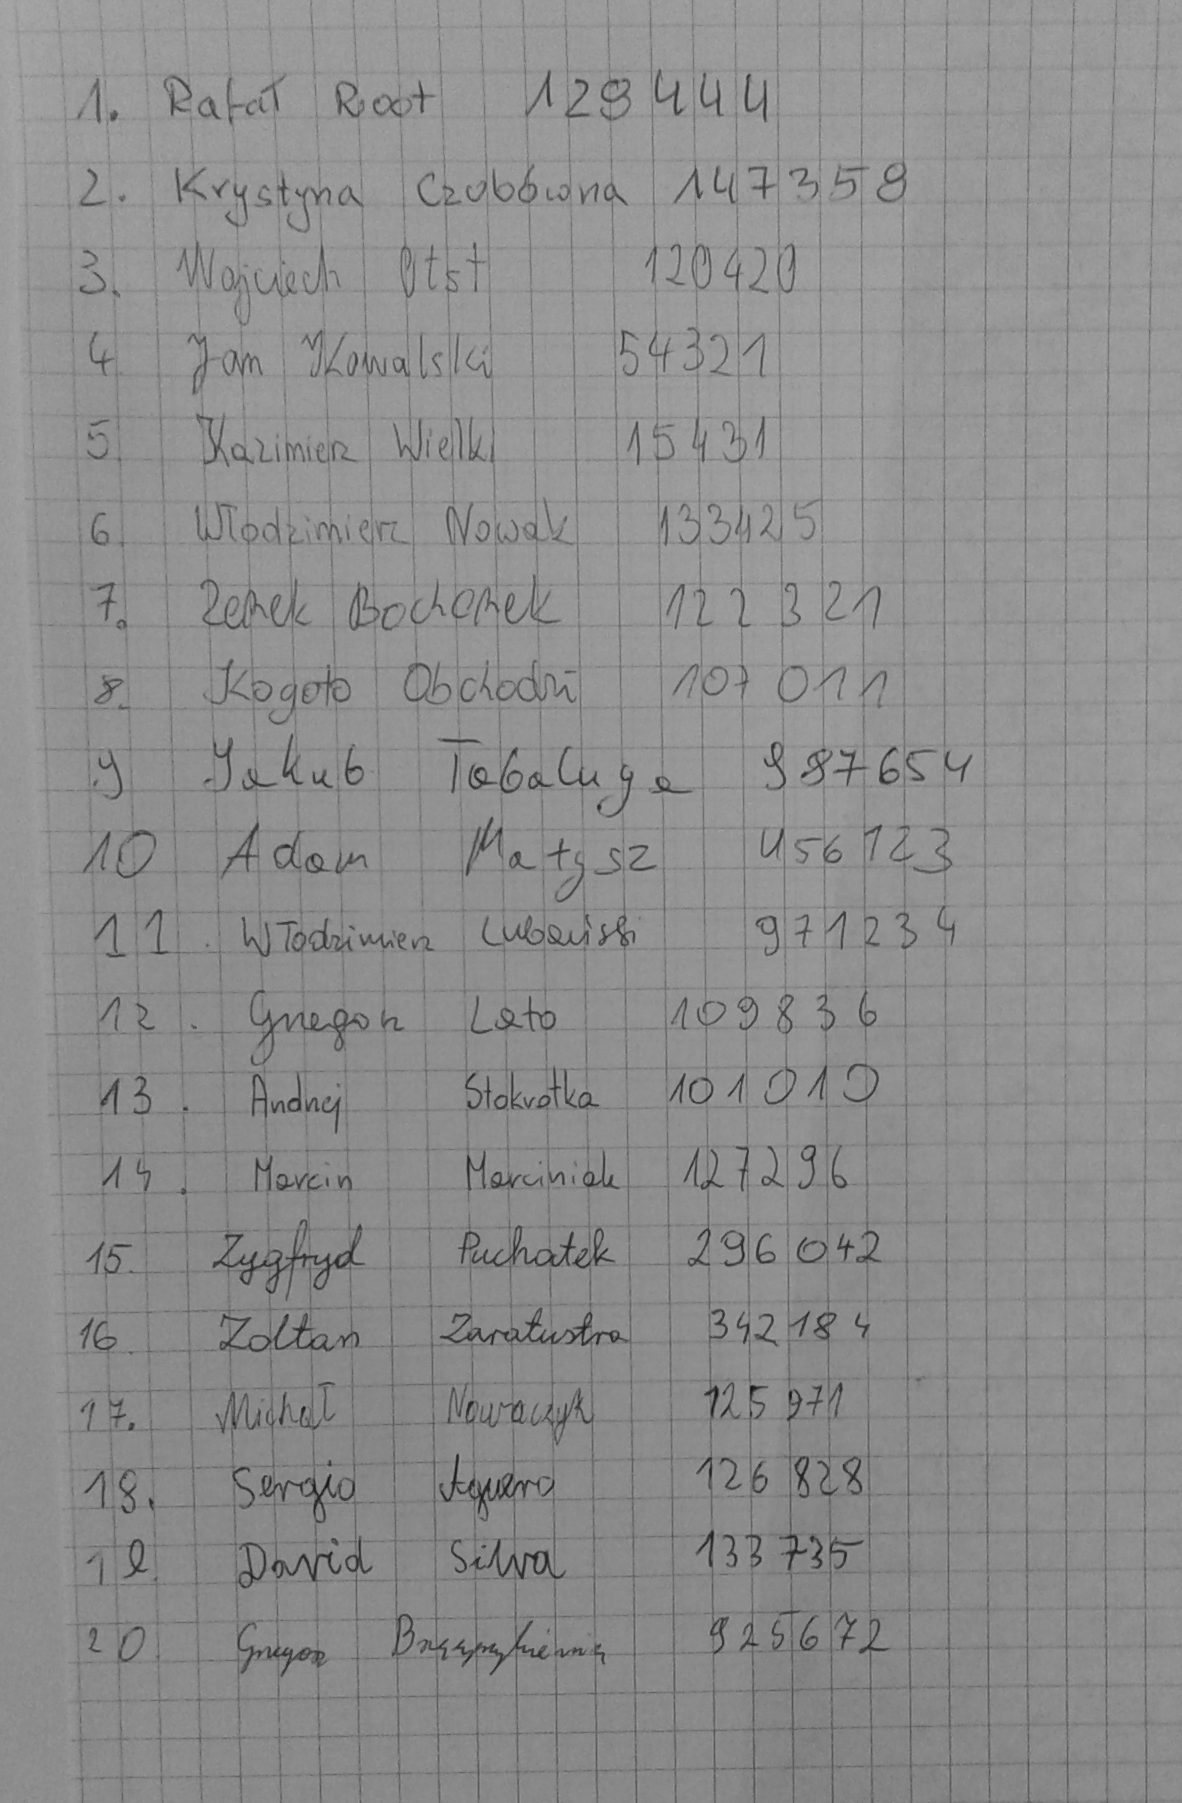 1. Rafał Root 129444
2. Krystyna Czubówna 147359
3. Wojciech Otst 120420
4 Jan Kowalski 54321
5. Kazimierz Wielki 15431
6. Włodzimierz Nowak 133425
7. Zenek Bochenek 122321
8. Kogoto Obchodzi 107011
9 Jakub Tabaluga 987654
10 Adam Małysz 456123
11. Włodzimierz Lubański 971234
12. Grzegorz Lato 109836
13. Andrzej Stokrotka 101010
14. Marcin Marciniak 127296
15. Zygfryd Puchatek 296042
16 Zoltan Zaratustra 342184
17. Michał Nowaczyk 125971
18. Sergio Aguero 126828
19. David Silva 133735
20 Grzegorz 925672